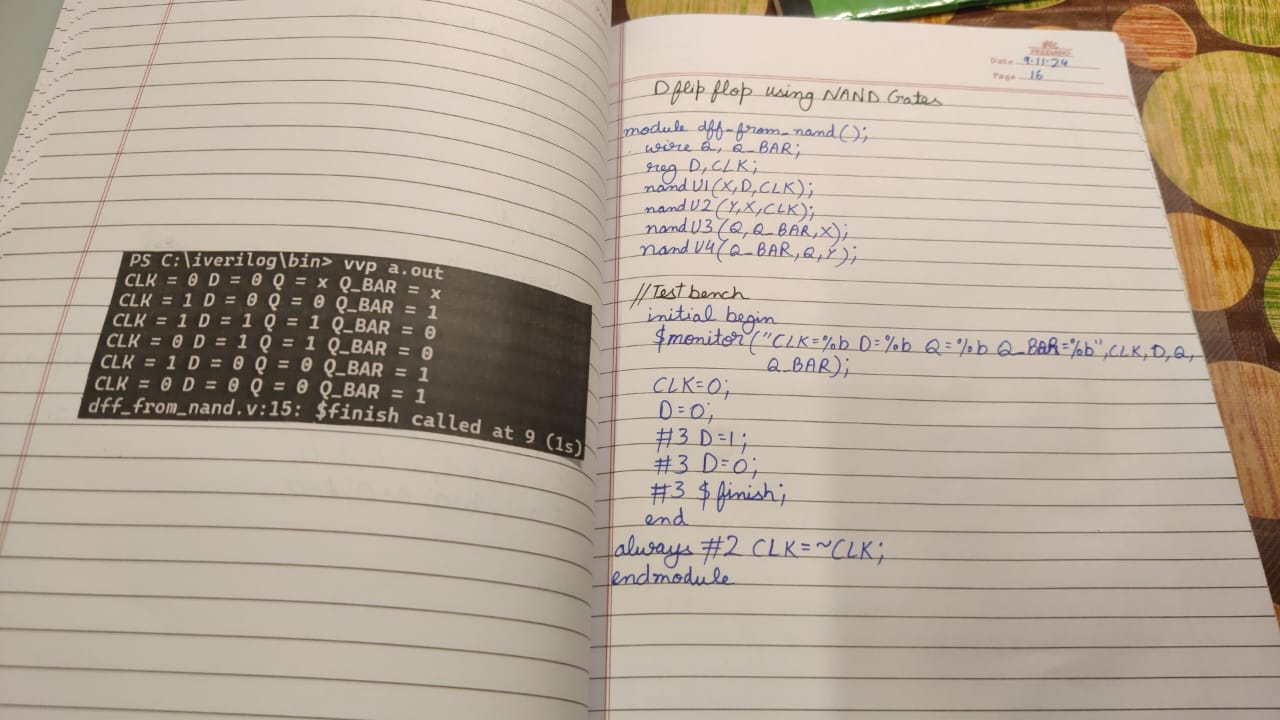 PS C:\iverilog\bin> vvp a.out
CLK = 0 D = 0 Q = x Q_BAR = x
CLK = 1 D = 0 Q = 0 Q_BAR = 1
CLK = 1 D = 1 Q = 1 Q_BAR = 0
CLK = 0 D = 1 Q = 1 Q_BAR = 0
CLK = 1 D = 0 Q = 0 Q_BAR = 1
CLK = 0 D = 0 Q = 0 Q_BAR = 1
dff_from_nand.v:15: $finish called at 9 (1s)
Date 9.11.24
Page 16
D flip flop using NAND Gates
module dff-from_nand();
wire Q, Q_BAR;
reg D,CLK;
nand U1(X,D,CLK);
nand U2(Y,X,CLK);
nand U3(Q,Q_BAR,X);
nand U4(Q_BAR,Q,Y);
//Test bench
initial begin
$monitor("CLK=%b D=%b Q=%b Q_BAR=%b",CLK,D,Q,
Q_BAR);
CLK=0;
D=0;
#3 D=1;
#3 D=0;
#3 $finish;
end
always #2 CLK=~CLK;
endmodule